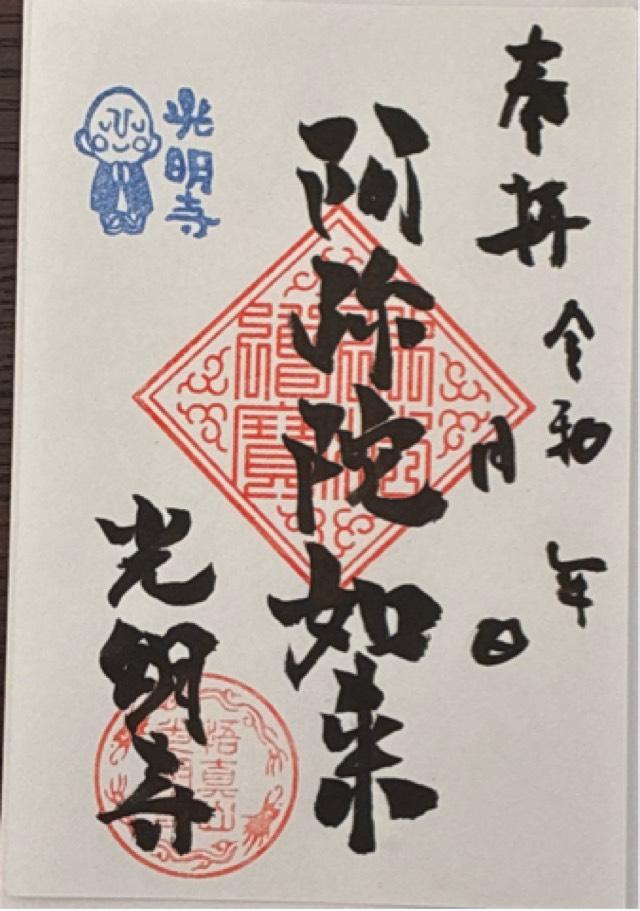 奉拝
令和 年
月 日
阿弥陀如来
光明寺
光明寺
悟真山
光明寺